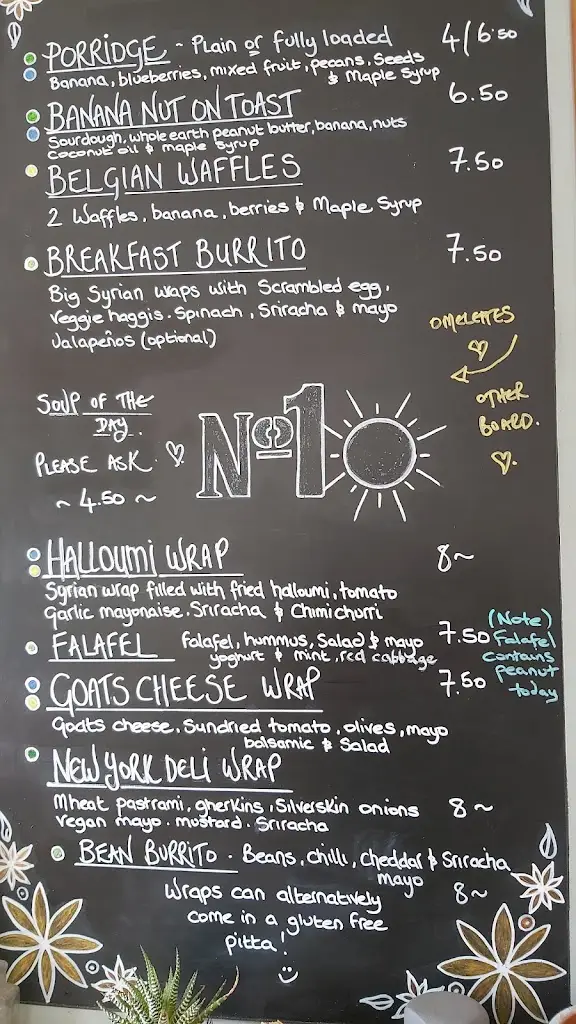 PORRIDGE ~ Plain or fully loaded 4/6.50
Banana, blueberries, mixed fruit, pecans, Seeds
& Maple Syrup
BANANA NUT ON TOAST 6.50
Sourdough, whole earth peanut butter, banana, nuts
coconut oil & maple syrup
BELGIAN WAFFLES 7.50
2 Waffles, banana, berries & Maple Syrup
BREAKFAST BURRITO 7.50
Big Syrian wraps with Scrambled egg,
Veggie haggis. Spinach, Sriracha & mayo
Jalapeños (optional)
OMELETTES
OTHER
BOARD.
SOUP OF THE
DAY.
PLEASE ASK
~ 4.50 ~
No10
HALLOUMI WRAP 8~
Syrian wrap filled with fried halloumi, tomato
Garlic mayonaise. Sriracha & Chimichurri
FALAFEL falafel, hummus, Salad & mayo 7.50
yoghurt & mint, red cabbage
(Note)
Falafel
contains
peanut
today
GOATS CHEESE WRAP 7.50
goats cheese. Sundried tomato, olives, mayo
balsamic & Salad
NEW YORK DELI WRAP
Mheat pastrami, gherkins, Silverskin onions 8~
Vegan mayo. mustard. Sriracha
BEAN BURRITO. Beans, chilli, cheddar & Sriracha
mayo 8~
Wraps can alternatively
come in a gluten free
pitta!